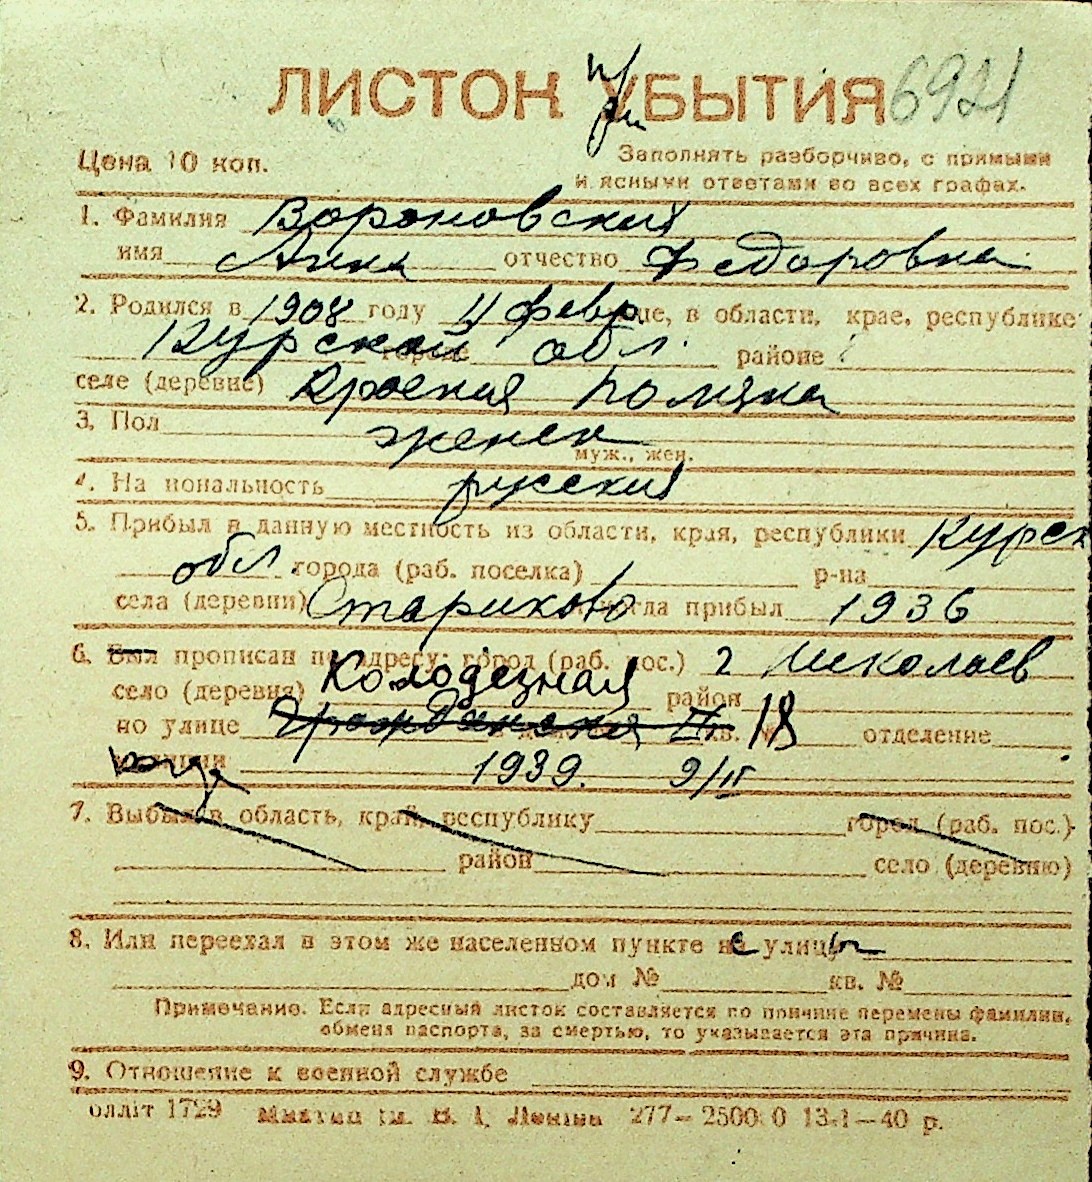 ЛИСТОК УБЫТИЯ 6921
при
Цена 10 коп.
Заполнять разборчиво, с прямыми
и ясными ответами во всех графах.
1. Фамилия Вороновский
имя Анна отчество Федоровна
2. Родился в 1908 году 11 февр. це, в области, крае, республике
Курской городе обл. районе
селе (деревне) Красная поляна
3. Пол женск
муж., жен.
4. На иональность русский
5. Прибыл в данную местность из области, края, республики Курск
обл. города (раб. поселка) р-на
села (деревни) Стариково когда прибыл 1936
6. Был прописан по адресу: город (раб. пос.) г Николаев
село (деревня) Колодезная район
по улице Гражданская кв. № 18 отделение
милиции 1939. 9/II
7. Выбыл в область, край, республику город (раб. пос.)
район село (деревню)
8. Или переехал в этом же населенном пункте не улицы
дом № кв. №
Примечание. Если адресный листок составляется по причине перемены фамилии,
обмена паспорта, за смертью, то указывается эта причина.
9. Отношение к военной службе
олліт 1729 ім. В. І. Леніна 277—2500 0 13.1—40 р.